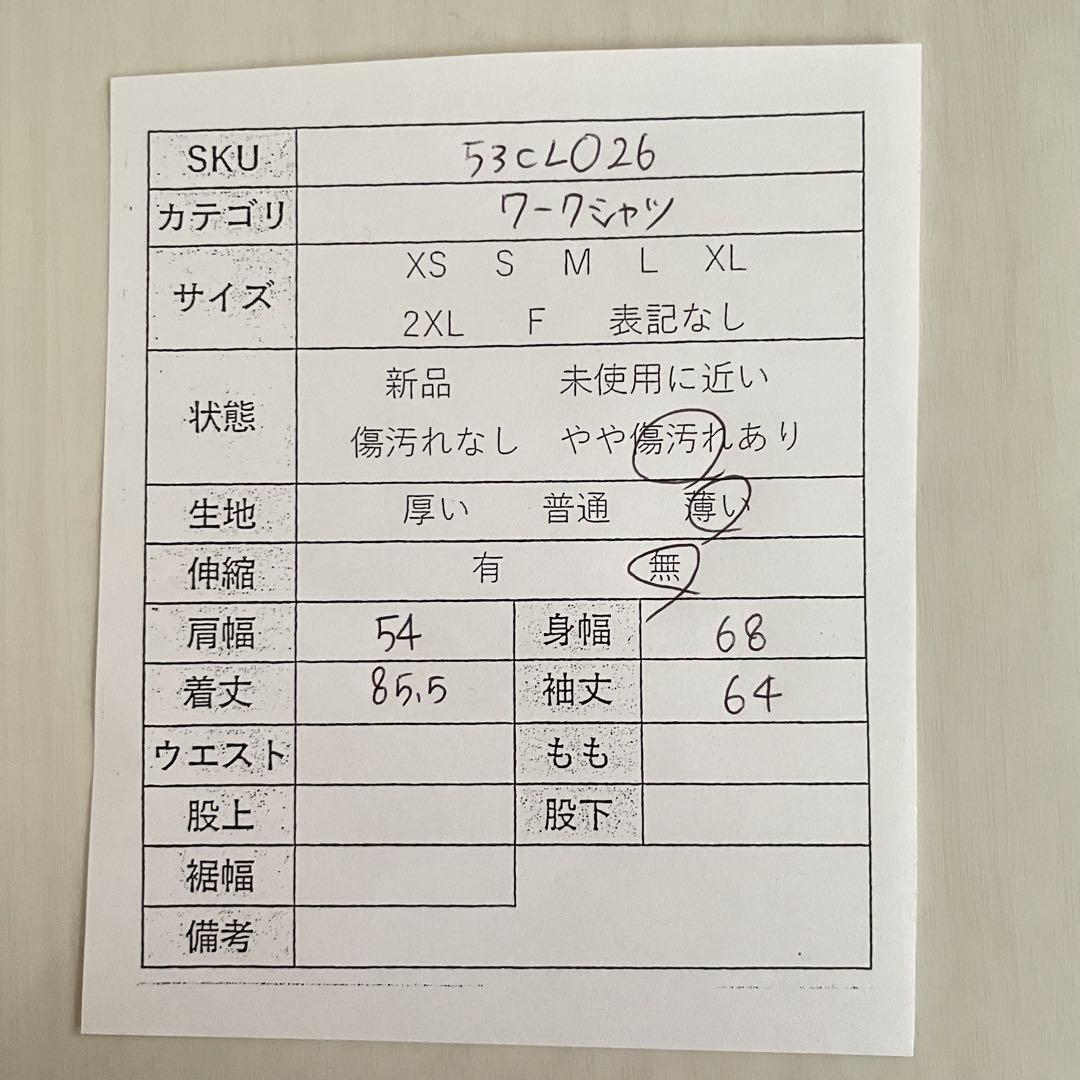 SKU 53CLO26
カテゴリ ワークシャツ
サイズ XS S M L XL
2XL F 表記なし
状態 新品 未使用に近い
傷汚れなし やや傷汚れあり
生地 厚い 普通 薄い
伸縮 有 無
肩幅 54 身幅 68
着丈 85.5 袖丈 64
ウエスト もも
股上 股下
裾幅
備考